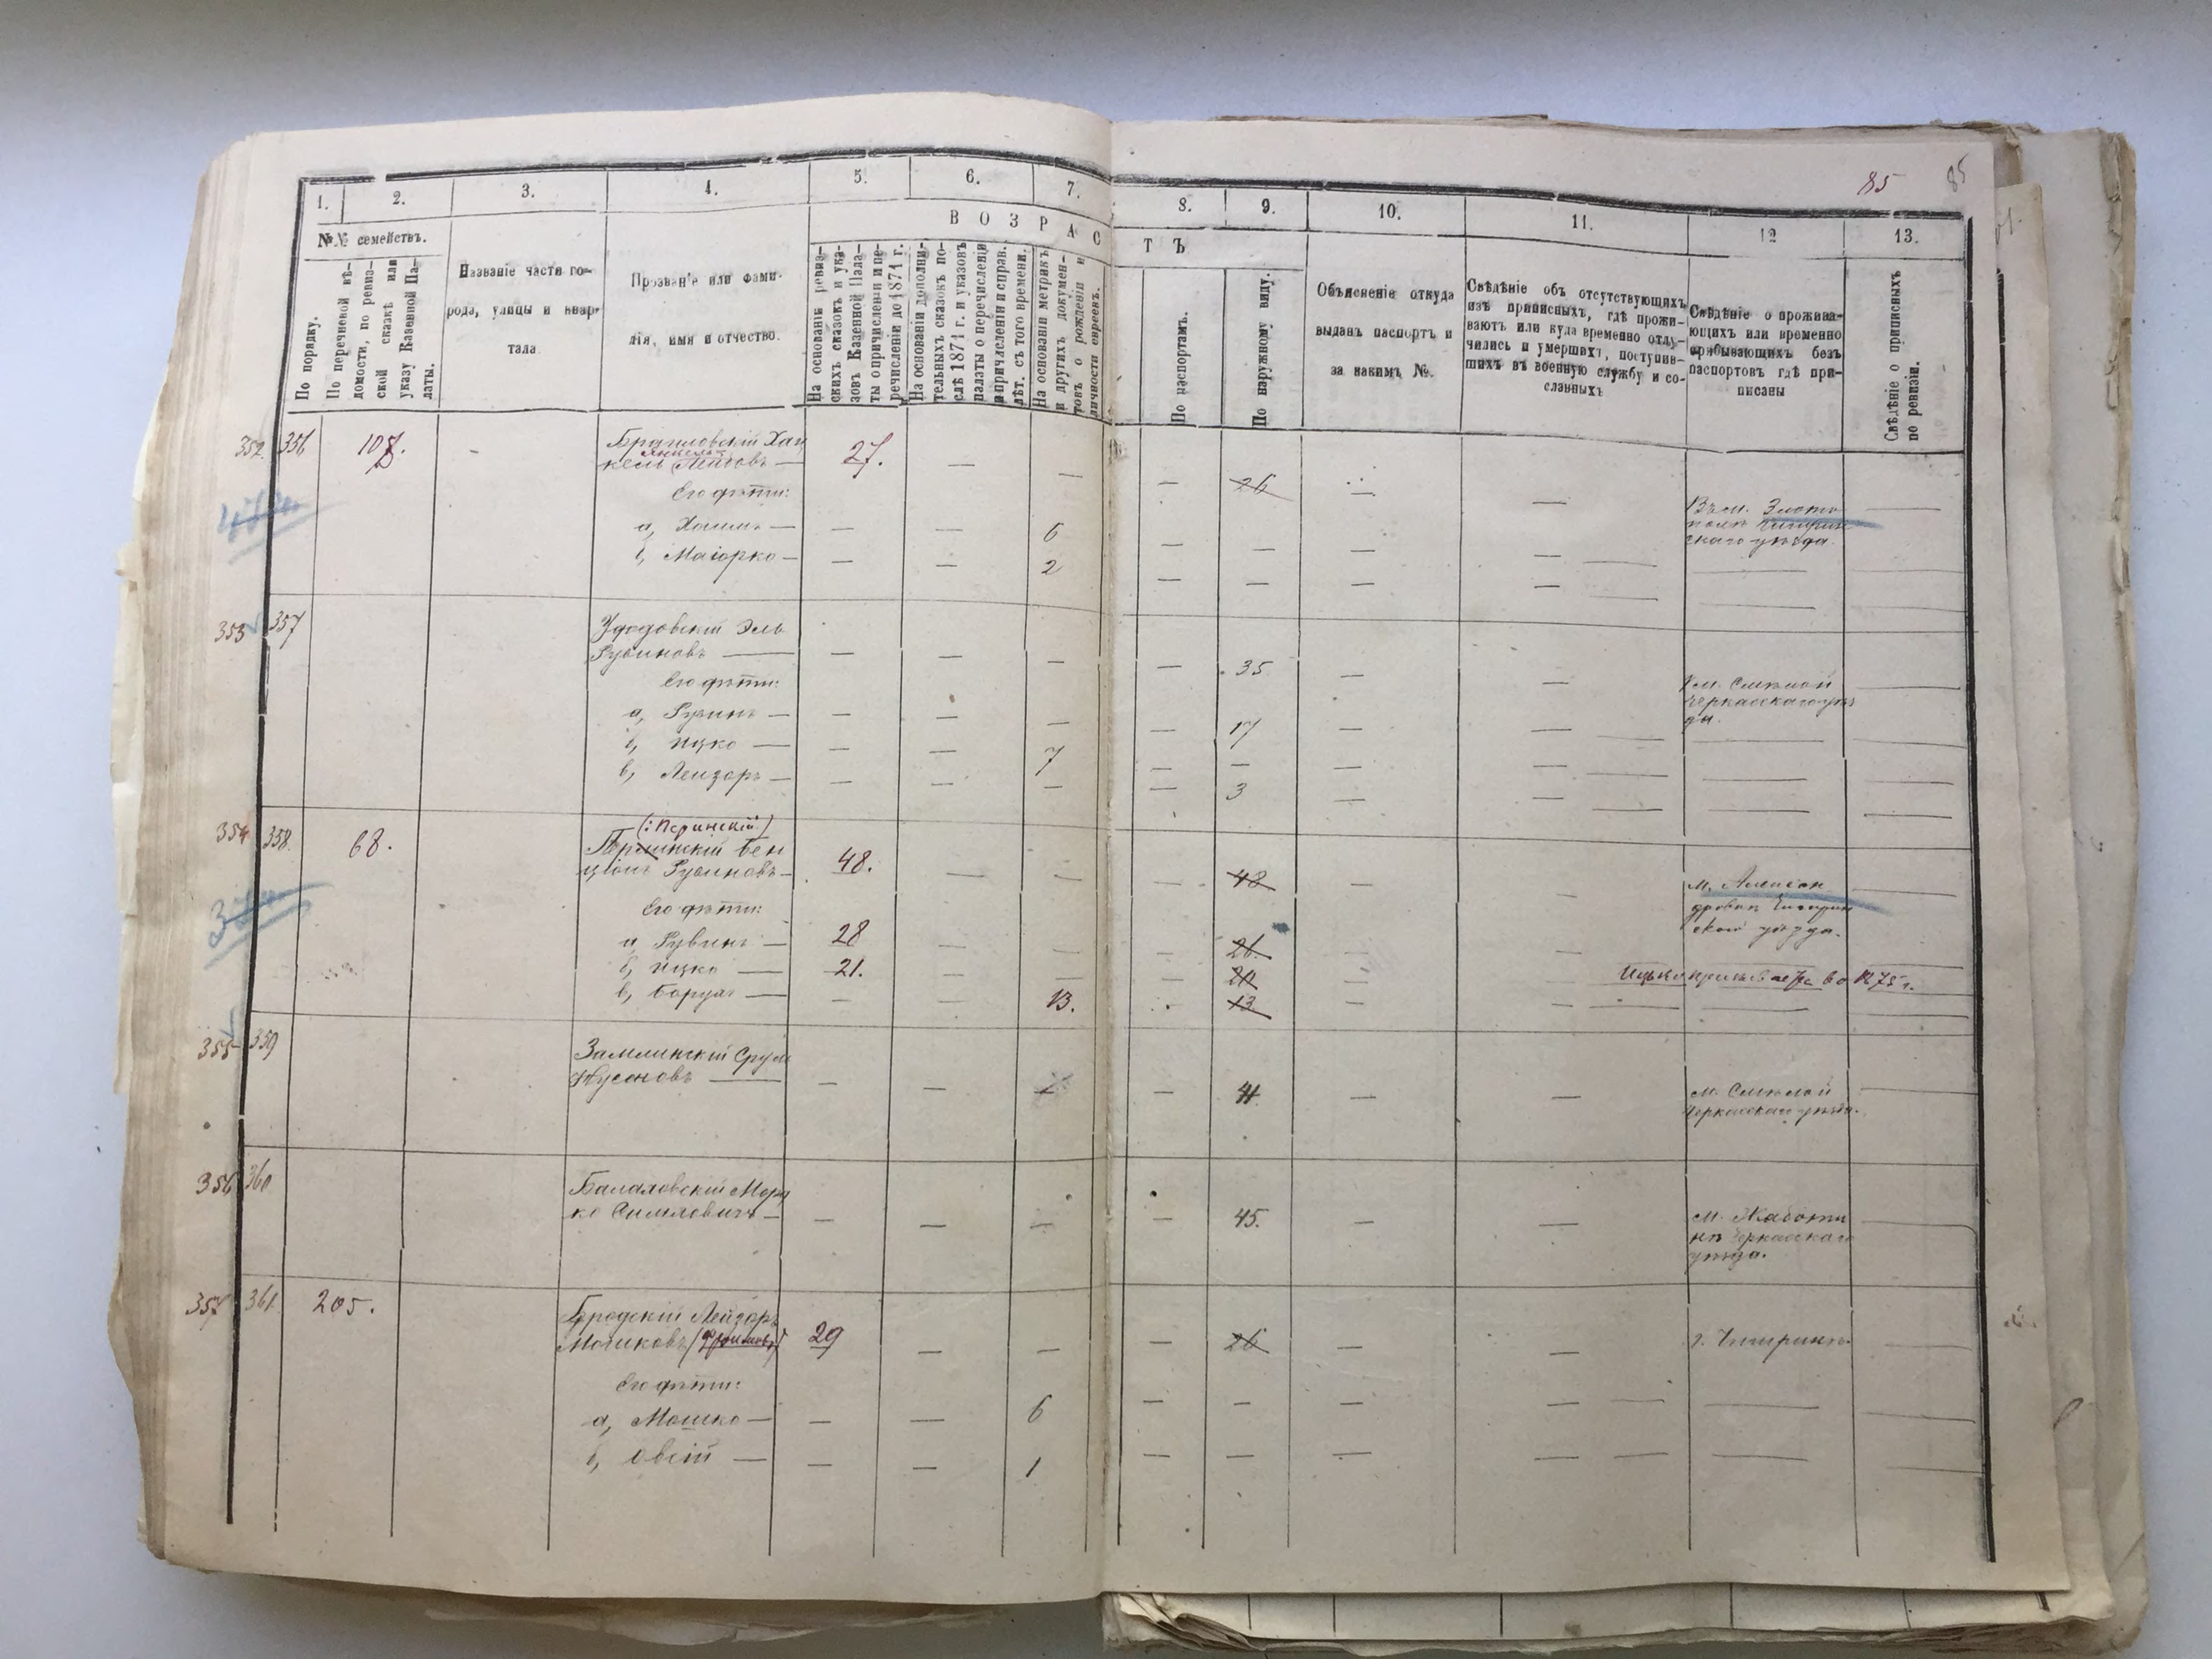 85 85
1. 2. 3. 4. 5. 6. 7. 8. 9. 10. 11. 12 13.
№№ семействъ.
В О З Р А С Т Ъ
По порядку.
По перечневой вѣ-
домости, по ревиз-
ской сказкѣ или
указу Казенной Па-
латы.
Названіе части го-
рода, улицы и квар-
тала
Прозваніе или фами-
лія, имя и отчество.
На основаніи ревиз-
скихъ сказокъ и ука-
зовъ Казенной Пала-
ты о причисленіи и пе-
речисленіи до 1871 г.
На основаніи дополни-
тельныхъ сказокъ по-
слѣ 1871 г. и указовъ
палаты о перечисленіи
и причисленіи и справ.
лѣт. съ того времени.
На основаніи метрикъ
и другихъ докумен-
товъ о рожденіи и
личности евреевъ.
По паспортамъ.
По наружному виду.
Объясненіе откуда
выданъ паспортъ и
за какимъ №.
Свѣдѣніе объ отсутствующихъ
изъ приписныхъ, гдѣ прожи-
ваютъ или куда временно отлу-
чились и умершихъ, поступив-
шихъ въ военную службу и со-
сланныхъ
Свѣдѣніе о прожива-
ющихъ или временно
прибывающихъ безъ
паспортовъ гдѣ при-
писаны
Свѣдѣніе о приписныхъ
по ревизіи.
352. 356 Браиловскій Хац 27.
кель — — — — 26 — —
Его дѣти:
а, — — — 6 — — —
б, Маіорко — — — 2 — — —
скаго уѣзда.
353 357 Эль
Рувиновъ — — — — — 35 — —
Его дѣти:
а, Рувинъ — — — — — 17 — —
б, Ицко — — — 7 — — — —
в, Лейзоръ — — — — — 3 — —
м. Смѣлой
Черкасскаго уѣз
да.
354 358 68. (: Перинскій)
Бен
ціонъ Рувиновъ — 48. — — — 48 — —
Его дѣти:
а, Рувинъ — 28 — — — 26. — —
б, Ицко — 21. — — — 20 — —
в, Борухъ — — — 13. — 13 — —
м. Алексан
дровкѣ Чигирин
ского уѣзда.
Ицько 1875 г.
355 359 Замлинскій Срул
Нусоновъ — — — — 41 — —
м. Смѣлой
Черкасскаго уѣзда.
356 360 Балаховскій Морд
ко — — — — — 45. — —
м. Жаботи
нѣ Черкасскаго
уѣзда.
357 361 205. Бродскій Лейзоръ
Мошковъ 29 — — — 26 — — г. Чигиринъ.
Его дѣти:
а, Мошко — — — 6 — — — —
б, Овсій — — — 1 — — — —